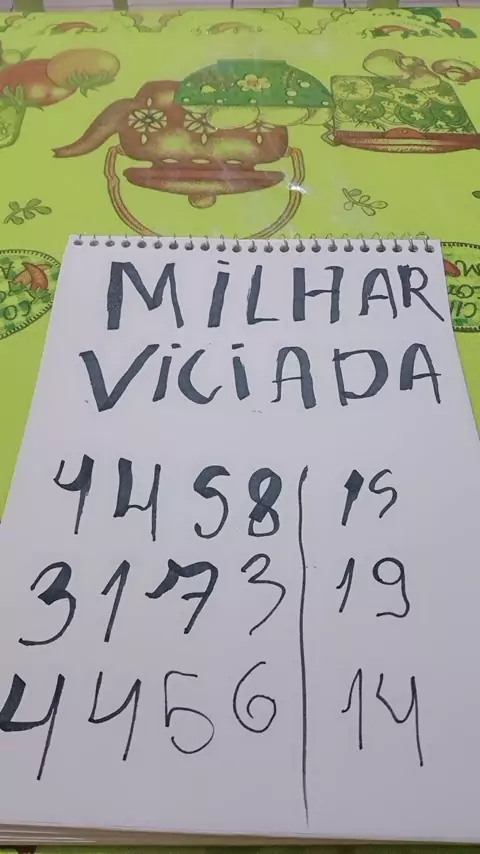 MILHAR
VICIADA
4458 | 15
3173 | 19
4456 | 14